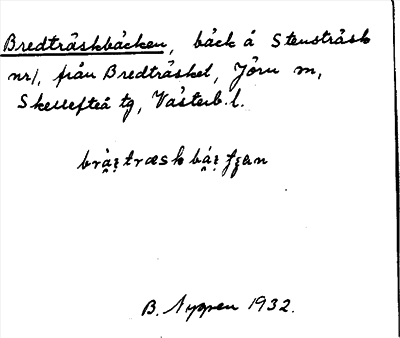 Bredträskbäcken, bäck å Stensträsk
nr1, från Bredträsket, Jörn m,
Skellefteå tg, Västerb. l.
B. Nygren 1932.